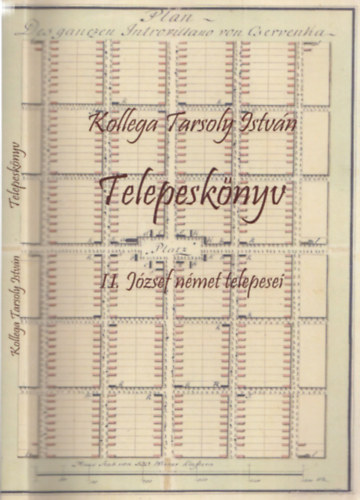 Plan
Des ganzen Introvillano von Cservenka
Kollega Tarsoly István
Telepeskönyv
Platz
II. József német telepesei
Kollega Tarsoly István
Telepeskönyv